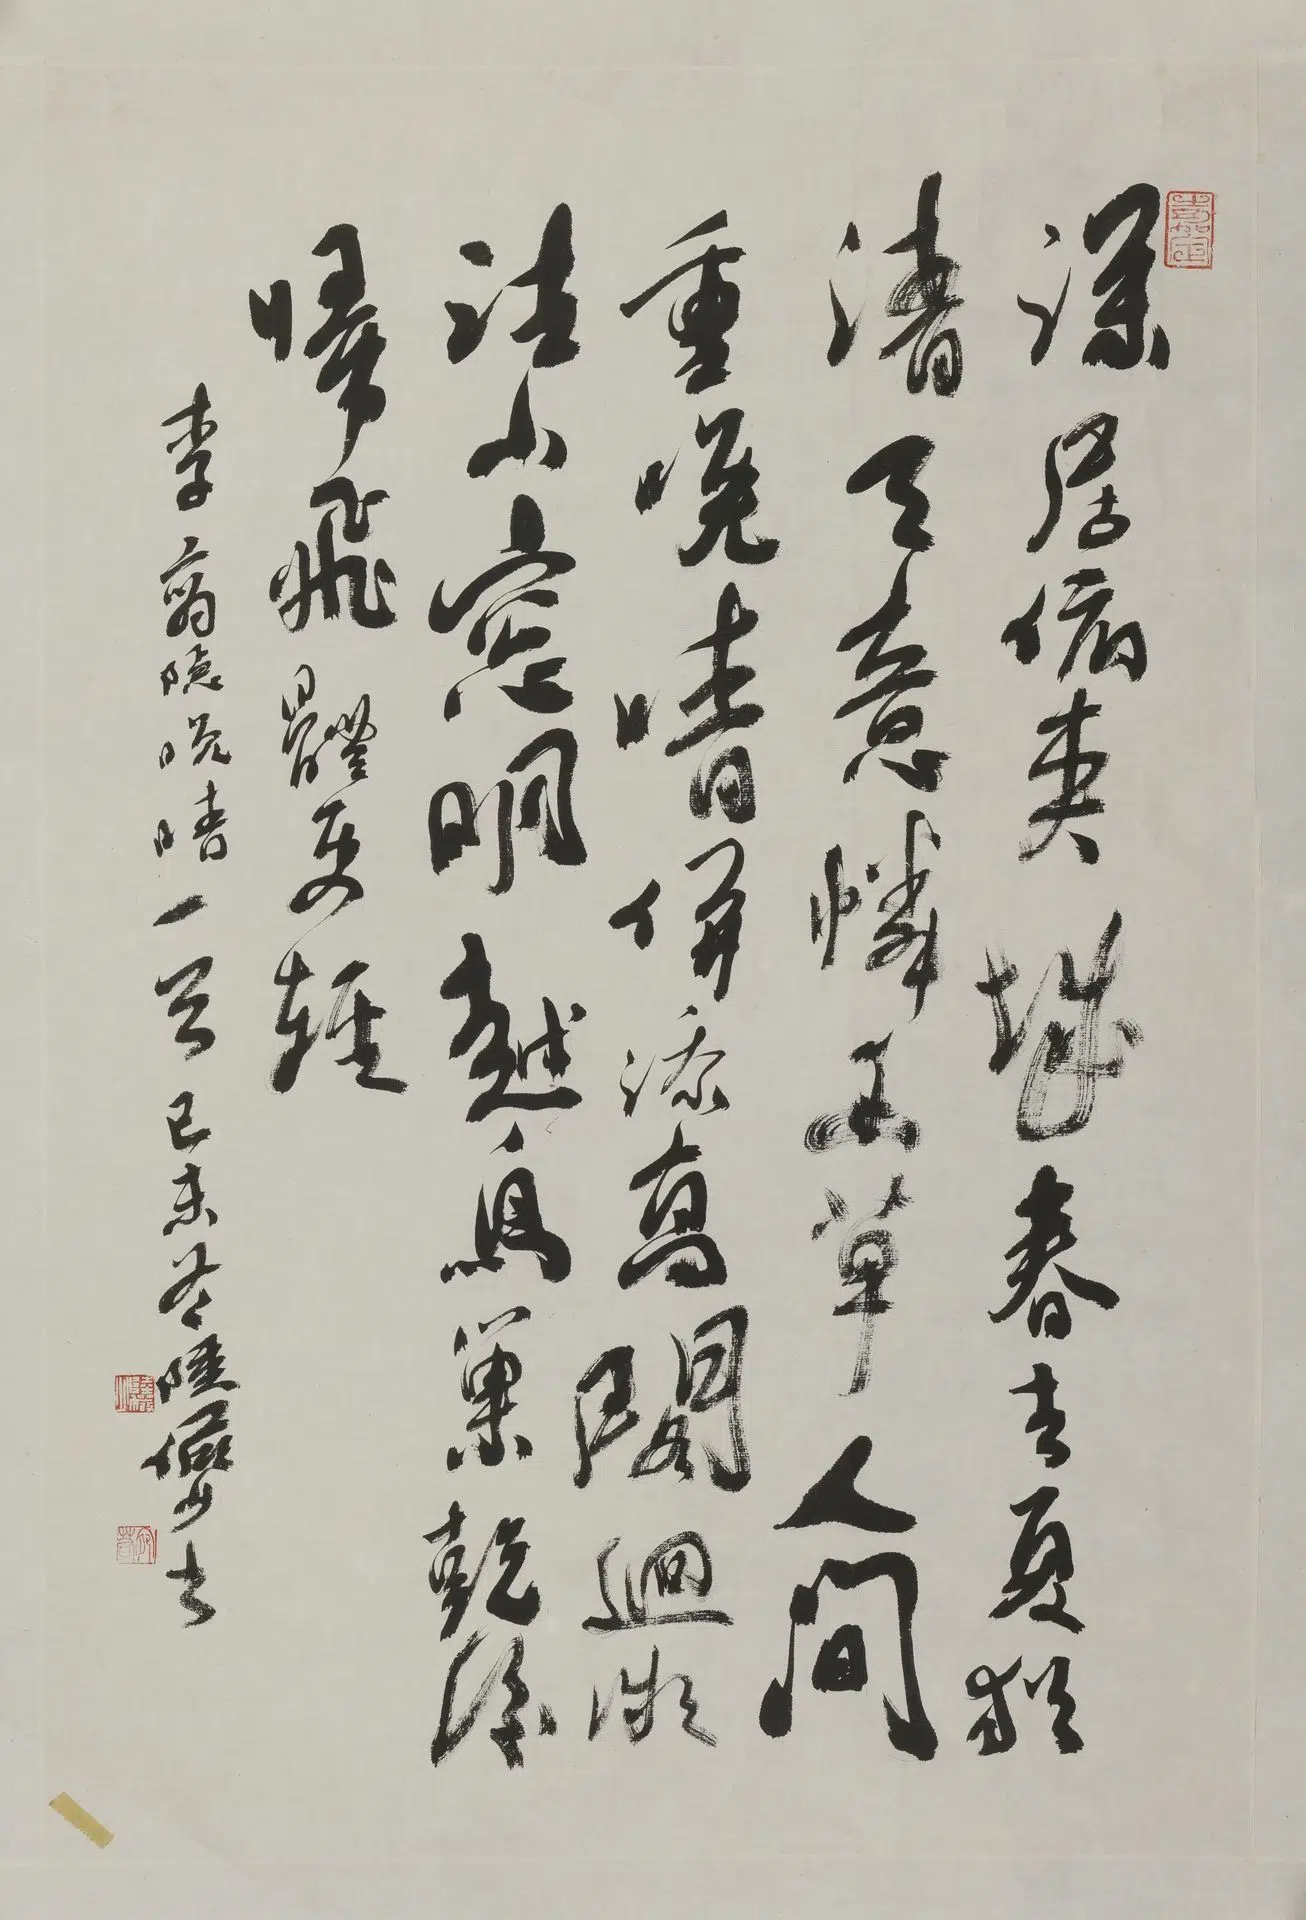 深居俯夾城春去夏猶
清天意憐幽草人間
重晚晴併添高閣迥微
注小窻明越鳥巢乾後
歸飛體更輕
李商隱晚晴一首己未冬陸儼少書